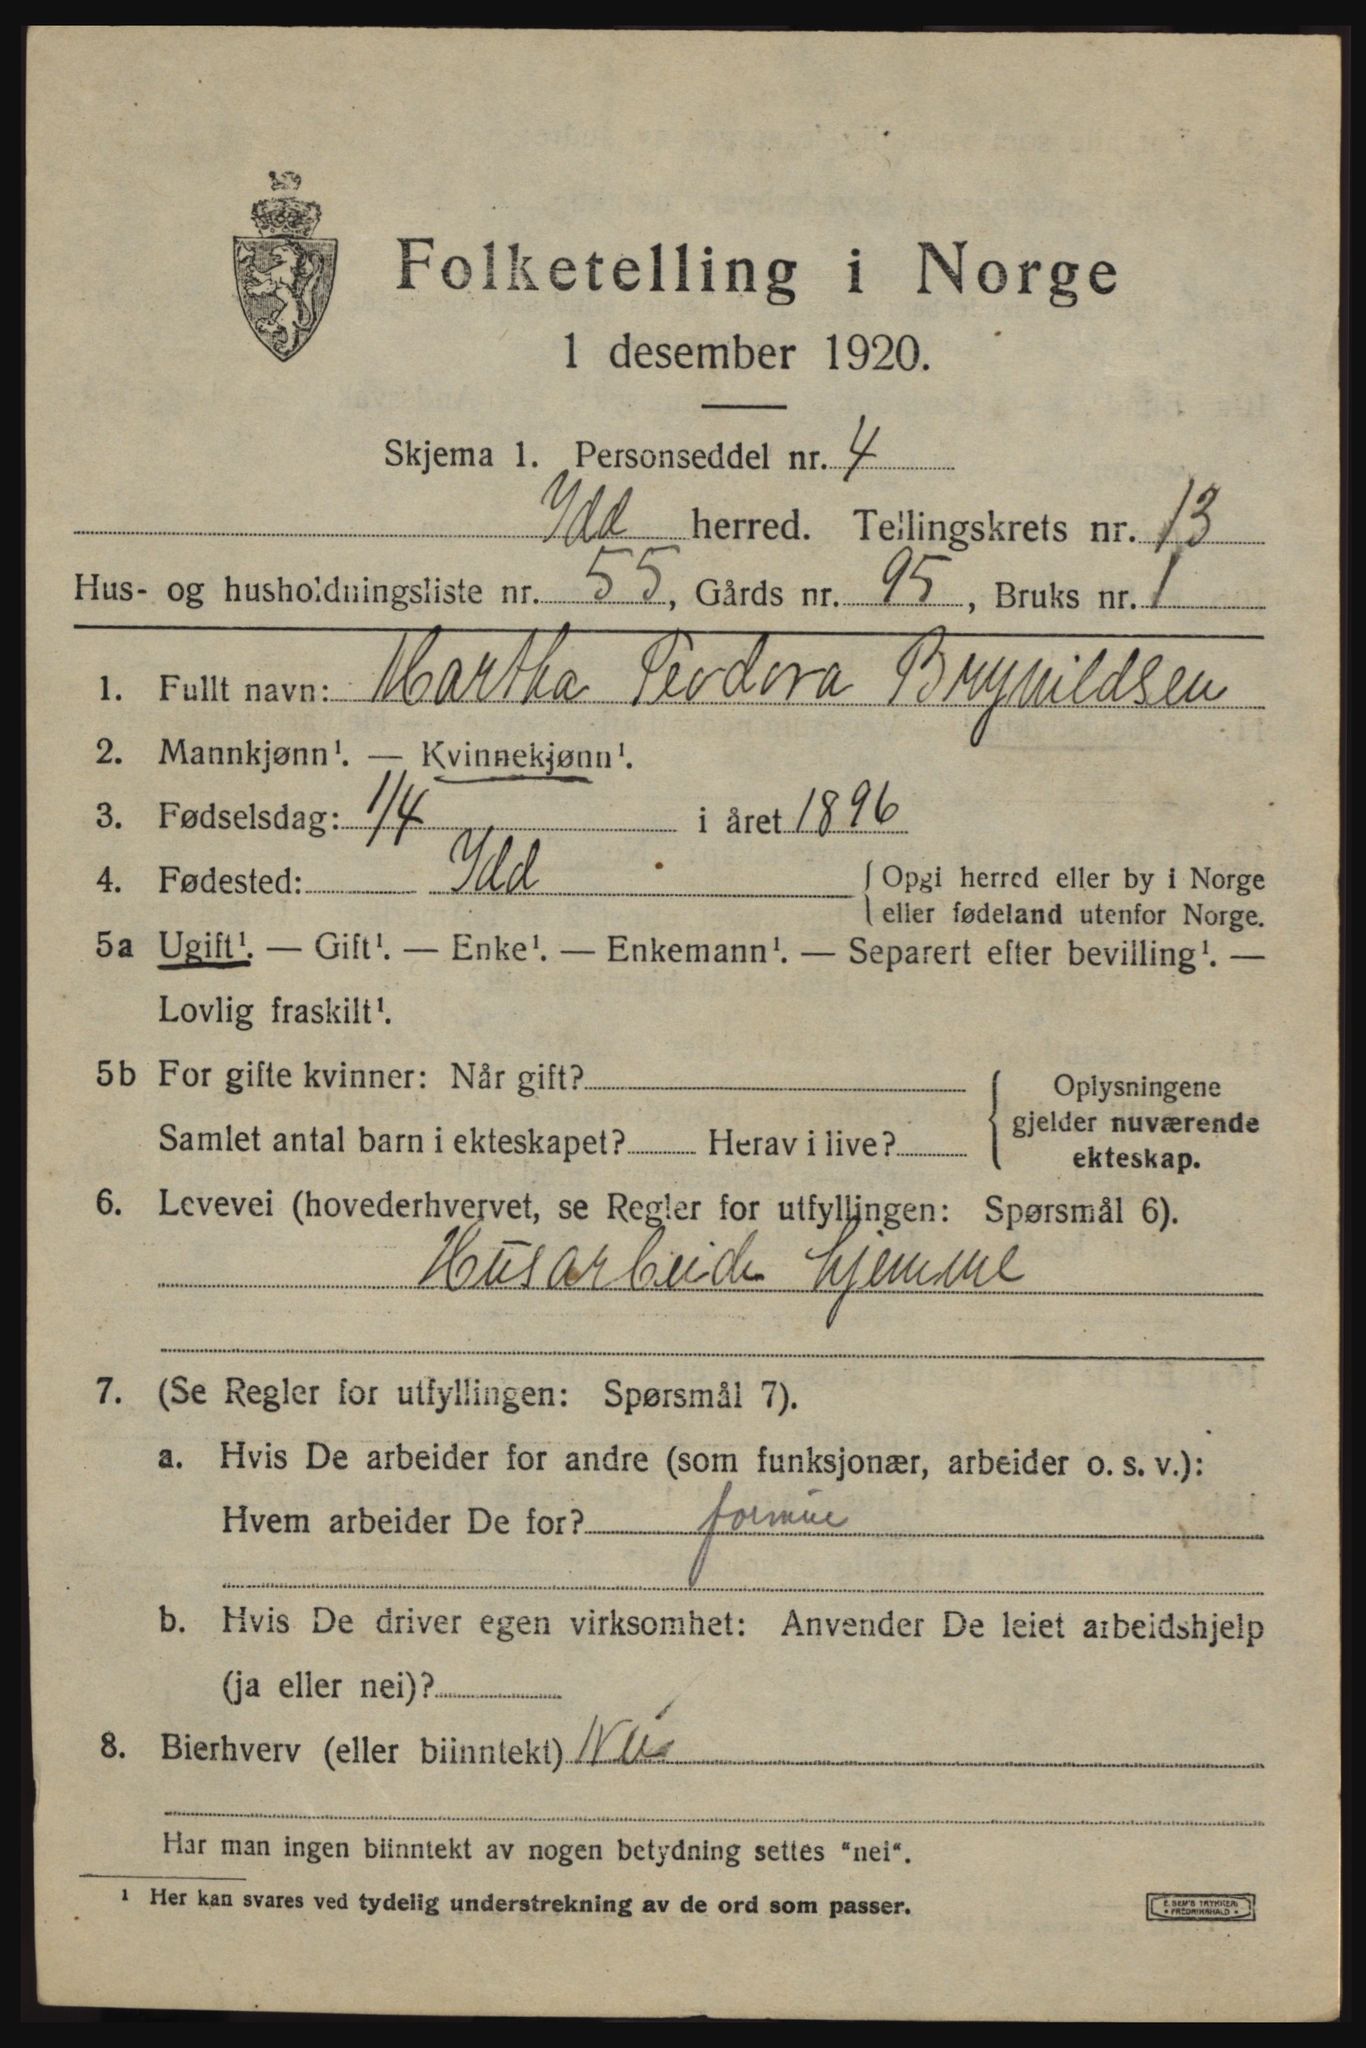 Folketelling i Norge
1 desember 1920.
Skjema 1. Personseddel nr. 4
Idd herred. Tellingskrets nr. 13
Hus- og husholdningsliste nr. 55, Gårds nr. 95, Bruks nr. 1
1. Fullt navn: Martha Teodora Brynildsen
2. Mannkjønn¹. — Kvinnekjønn¹.
3. Fødselsdag: 1/4 i året 1896
4. Fødested: Idd { Opgi herred eller by i Norge
eller fødeland utenfor Norge.
5a Ugift¹. — Gift¹. — Enke¹. — Enkemann¹. — Separert efter bevilling¹. —
Lovlig fraskilt¹.
5b For gifte kvinner: Når gift? { Oplysningene
gjelder nuværende
Samlet antal barn i ekteskapet? Herav i live?
ekteskap.
6. Levevei (hovederhvervet, se Regler for utfyllingen: Spørsmål 6).
Husarbeide hjemme
7. (Se Regler for utfyllingen: Spørsmål 7).
a. Hvis De arbeider for andre (som funksjonær, arbeider o. s. v.):
Hvem arbeider De for?
b. Hvis De driver egen virksomhet: Anvender De leiet arbeidshjelp
(ja eller nei)?
8. Bierhverv (eller biinntekt) Nei
Har man ingen biinntekt av nogen betydning settes "nei".
¹ Her kan svares ved tydelig understrekning av de ord som passer.
E. SEM'S TRYKKERI
FREDRIKSHALD